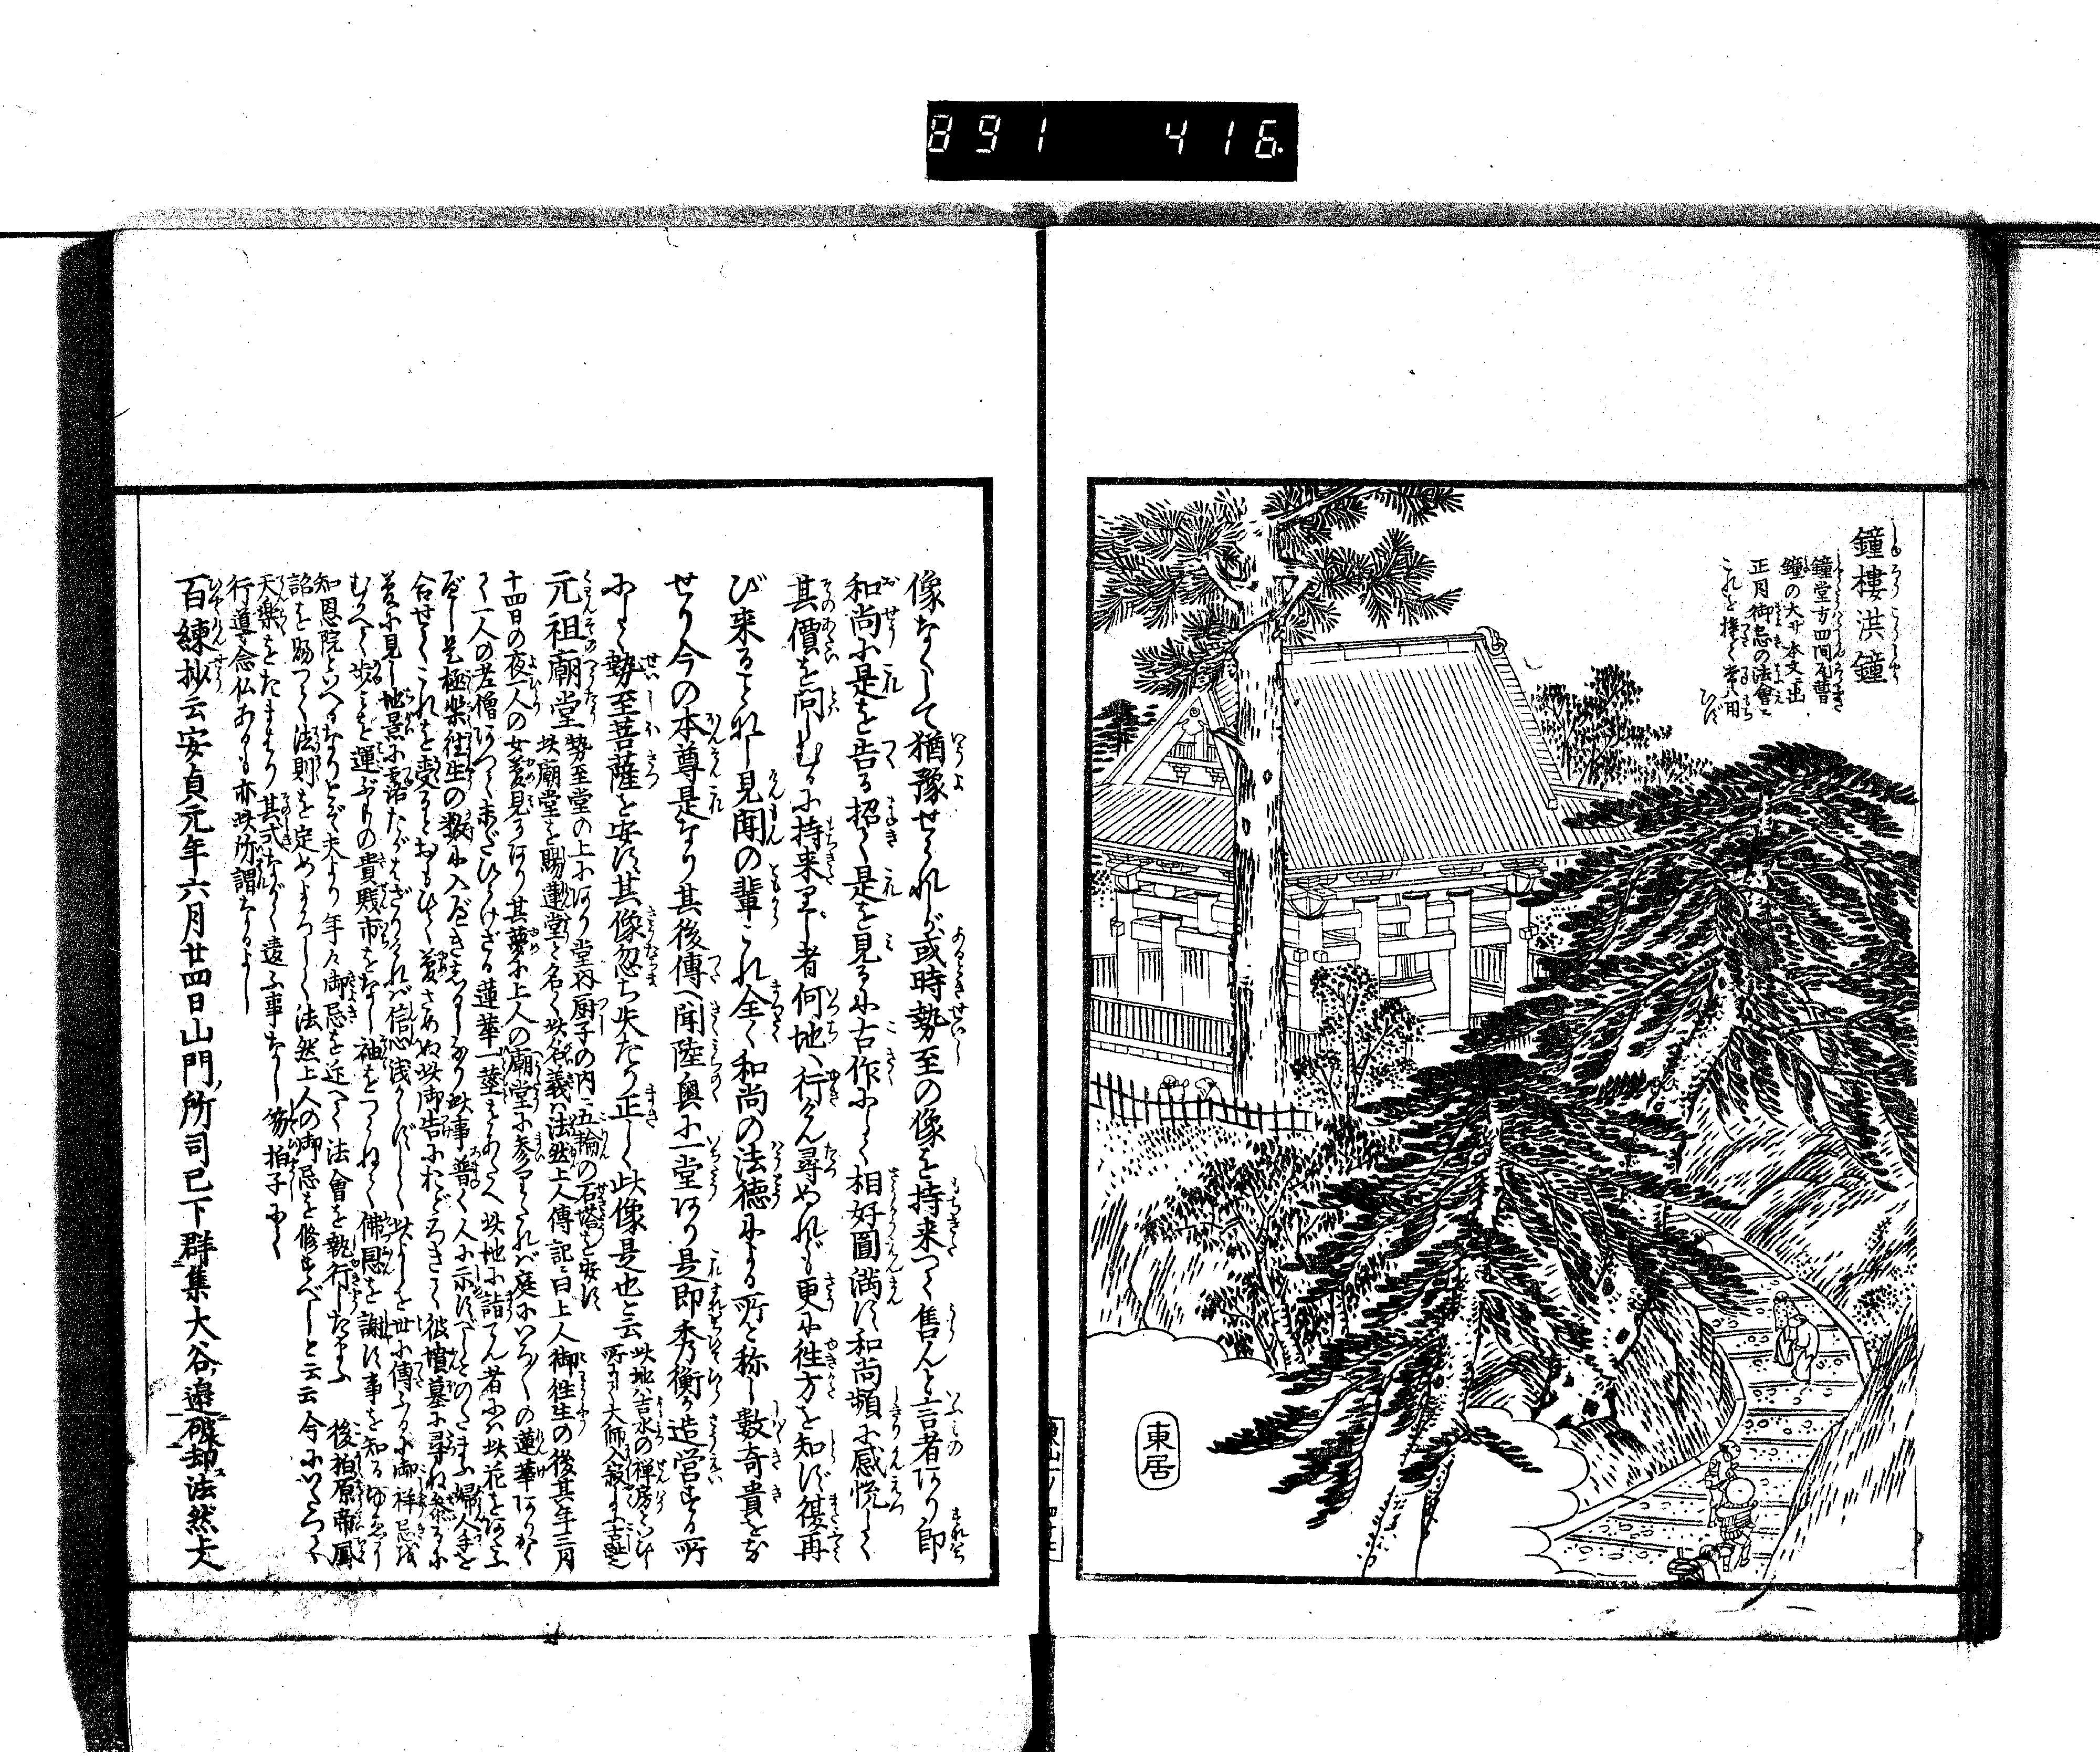 891 416
鐘樓洪鐘
鐘堂方四間
鐘の大サ本文ニ出
正月御忌の法會に
これを撞く常ハ用
ひず
東居
像なくして猶豫せられしが或時勢至の像を持来つて售んと言者あり即
和尚に是を告る招て是を見るに古作にして相好圓満す和尚頻に感悦して
其價を問しむるに持来りし者何地へ行けん尋ぬれども更に往方を知ず復再
び来ることなし見聞の輩これ全く和尚の法徳による所と称し數奇貴をな
せり今の本尊是なり其後傳へ聞陸奥に一堂あり是即秀衡が造営する所
にして勢至菩薩を安ず其像忽ち失たり正しく此像是也と云 此地ハ吉水の禅房といひ
元祖廟堂 勢至堂の上にあり堂内厨子の内ニ五輪の石塔を安ず
此廟堂を賜蓮堂と名く此名義ハ法然上人傳記ニ曰上人御往生の後其年三月
十四日の夜一人の女夢見るあり其夢に上人の廟堂に参りたれバ庭にいろ〳〵の蓮華あり
一人の老僧ありて未だひらけざる蓮華一莖をあたへ此地に詣てん者にハ此花をあたふ
べし是極楽往生の数に入べきしるしなり此事普く人に示すべしとのたまふ婦人手を
合せてこれを受るとおもひて夢さめぬ此御告におどろきて彼墳墓に尋ね参るに
夢に見し地景に露たがはざりければ信心浅からずして此よしを世に傳ふるに御祥忌
歩を運ぶもの貴賎市をなし袖をつらねて佛恩を謝す事を知る
知恩院といへるなりとぞ夫より年々御忌を近へて法會を執行したまふ 後柏原帝鳳
詔を賜つて法則を定めよろしく法然上人の御忌を修すべしと云云今にいたつて
天楽をたまハり其式ながく違ふ事なし 笏拍子にて
行道念仏あるも亦此所謂なるよし
百練抄云安貞元年六月廿四日山門所司已下群集大谷邊破却法然上人